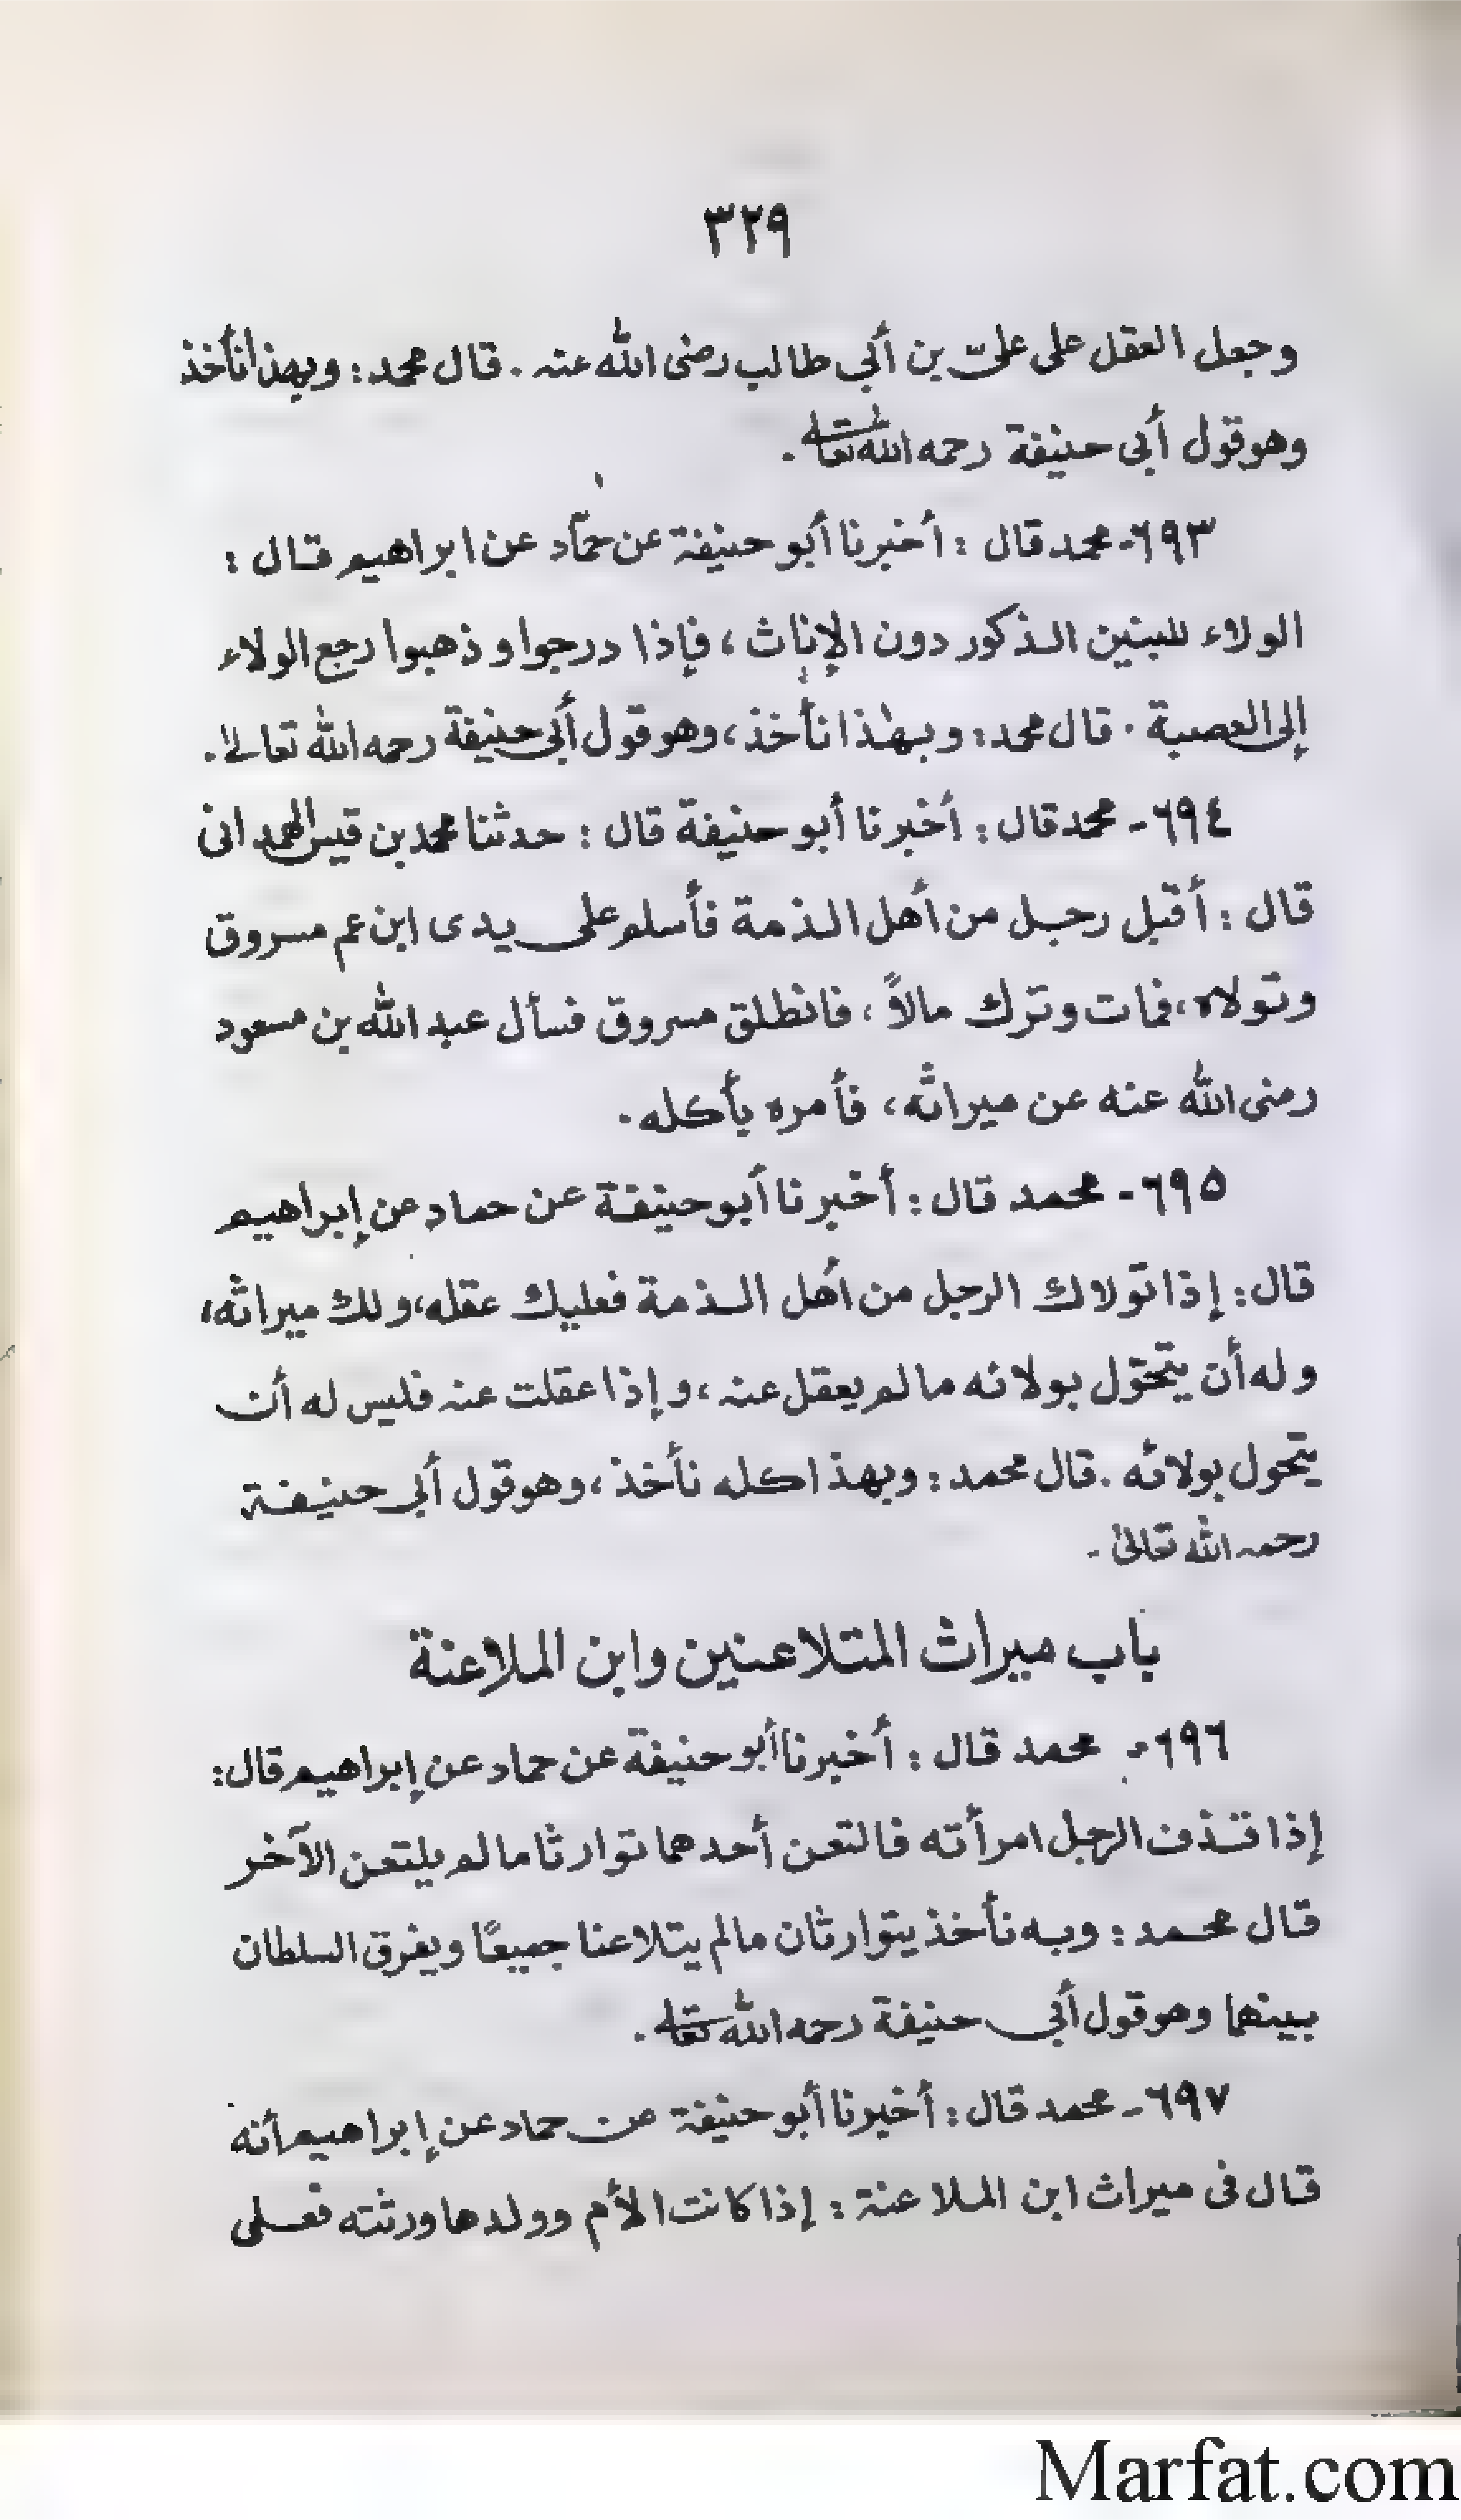 ٣٢٩
وجعل العقل على علىّ بن أبي طالب رضى الله عنه . قال محمد : وبهذا نأخذ
وهو قول أبى حنيفة رحمه الله تعالى .
٦٩٣- محمد قال : أخبرنا أبو حنيفة عن حمّاد عن ابراهيم قال :
الولاء للبنين الذكور دون الإناث ، فإذا درجوا و ذهبوا رجع الولاء
إلى العصبة . قال محمد : وبهٰذا نأخذ ، وهو قول أبى حنيفة رحمه الله تعالىٰ .
٦٩٤- محمد قال : أخبرنا أبو حنيفة قال : حدثنا محمد بن قيس الهمدانى
قال : أقبل رجل من أهل الذمة فأسلم على يدى ابن عم مسروق
وتولاه ، فمات وترك مالاً ، فانطلق مسروق فسأل عبد الله بن مسعود
رضى الله عنه عن ميراثه ، فأمره بأكله .
٦٩٥- محمد قال : أخبرنا أبو حنيفة عن حماد عن إبراهيم
قال : إذا تولاك الرجل من أهل الذمة فعليك عقله ، ولك ميراثه ،
وله أن يتحوّل بولائه ما لم يعقل عنه ، و إذا عقلت عنه فليس له أن
يتحول بولائه . قال محمد : وبهذا كله نأخذ ، وهو قول أبي حنيفة
رحمه الله تعالىٰ .
باب ميراث المتلاعنين وابن الملاعنة
٦٩٦- محمد قال : أخبرنا أبو حنيفة عن حماد عن إبراهيم قال :
إذا قذف الرجل امرأته فالتعن أحدهما توارثا ما لم يلتعن الآخر
قال محمد : وبه نأخذ يتوارثان مالم يتلاعنا جميعًا ويفرق السلطان
بينهما وهو قول أبي حنيفة رحمه الله تعالى .
٦٩٧- محمد قال : أخبرنا أبو حنيفة عن حماد عن إبراهيم أنه
قال فى ميراث ابن الملاعنة : إذا كانت الأم وولدها ورثته فعلى
Marfat.com